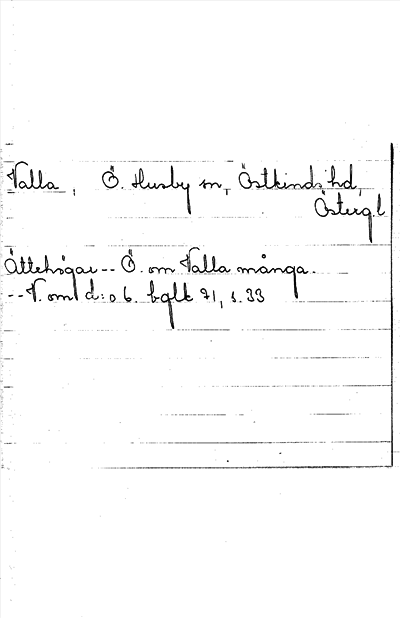 Valla, Ö. Husby sn, Östkinds hd,
Österg.l
Ättehögar -- Ö. om Valla många.
-- V. om d:o 6. bglk 71, s. 33